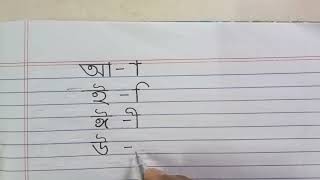 আ - া
ই - ি
ঈ - ী
উ -